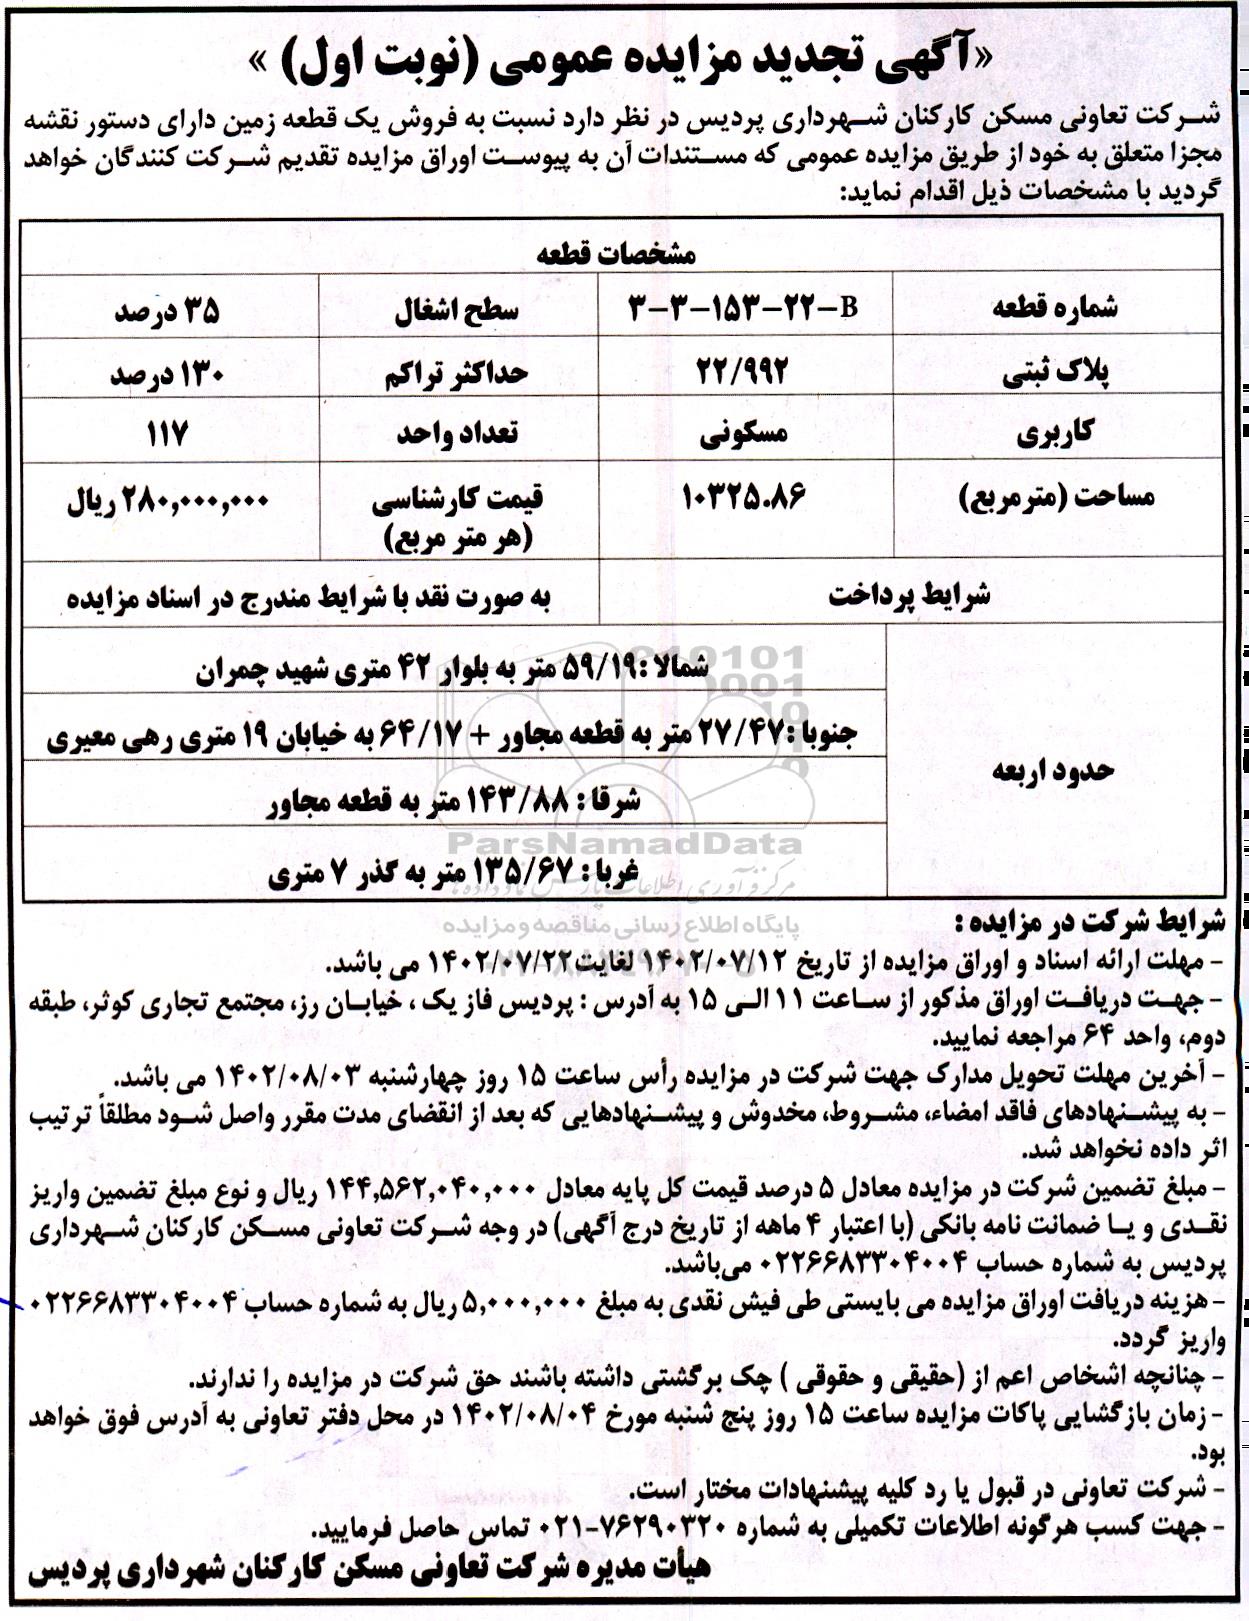 «آگهی تجدید مزایده عمومی (نوبت اول) »
شرکت تعاونی مسکن کارکنان شهرداری پردیس در نظر دارد نسبت به فروش یک قطعه زمین دارای دستور نقشه
مجزا متعلق به خود از طریق مزایده عمومی که مستندات آن به پیوست اوراق مزایده تقدیم شرکت کنندگان خواهد
گردید با مشخصات ذیل اقدام نماید:
مشخصات قطعه
شماره قطعه ۳-۳-۱۵۳-۲۲-B سطح اشغال ۳۵ درصد
پلاک ثبتی ۲۲/۹۹۲ حداکثر تراکم ۱۳۰ درصد
کاربری مسکونی تعداد واحد ۱۱۷
مساحت (مترمربع) ۱۰۳۲۵.۸۶ قیمت کارشناسی ۲۸۰,۰۰۰,۰۰۰ ریال
(هر متر مربع)
شرایط پرداخت به صورت نقد با شرایط مندرج در اسناد مزایده
شمالا :۵۹/۱۹ متر به بلوار ۴۲ متری شهید چمران
جنوبا :۲۷/۴۷ متر به قطعه مجاور + ۶۴/۱۷ به خیابان ۱۹ متری رهی معیری
حدود اربعه
شرقا : ۱۴۳/۸۸ متر به قطعه مجاور
ParsNamadData
غربا : ۱۳۵/۶۷ متر به گذر ۷ متری
شرایط شرکت در مزایده :
پایگاه اطلاع رسانی مناقصه و مزایده
- مهلت ارائه اسناد و اوراق مزایده از تاریخ ۱۴۰۲/۰۷/۱۲ لغایت۱۴۰۲/۰۷/۲۲ می باشد.
- جهت دریافت اوراق مذکور از ساعت ۱۱ الی ۱۵ به آدرس : پردیس فاز یک ، خیابان رز، مجتمع تجاری کوثر، طبقه
دوم، واحد ۶۴ مراجعه نمایید.
- آخرین مهلت تحویل مدارک جهت شرکت در مزایده رأس ساعت ۱۵ روز چهارشنبه ۱۴۰۲/۰۸/۰۳ می باشد.
- به پیشنهادهای فاقد امضاء، مشروط، مخدوش و پیشنهادهایی که بعد از انقضای مدت مقرر واصل شود مطلقاً ترتیب
اثر داده نخواهد شد.
- مبلغ تضمین شرکت در مزایده معادل ۵ درصد قیمت کل پایه معادل ۱۴۴,۵۶۲,۰۴۰,۰۰۰ ریال و نوع مبلغ تضمین واریز
نقدی و یا ضمانت نامه بانکی (با اعتبار ۴ ماهه از تاریخ درج آگهی) در وجه شرکت تعاونی مسکن کارکنان شهرداری
پردیس به شماره حساب ۰۲۲۶۶۸۳۳۰۴۰۰۴ می‌باشد.
- هزینه دریافت اوراق مزایده می بایستی طی فیش نقدی به مبلغ ۵,۰۰۰,۰۰۰ ریال به شماره حساب ۰۲۲۶۶۸۳۳۰۴۰۰۴
واریز گردد.
- چنانچه اشخاص اعم از (حقیقی و حقوقی ) چک برگشتی داشته باشند حق شرکت در مزایده را ندارند.
- زمان بازگشایی پاکات مزایده ساعت ۱۵ روز پنج شنبه مورخ ۱۴۰۲/۰۸/۰۴ در محل دفتر تعاونی به آدرس فوق خواهد
بود.
- شرکت تعاونی در قبول یا رد کلیه پیشنهادات مختار است.
- جهت کسب هرگونه اطلاعات تکمیلی به شماره ۷۶۲۹۰۳۲۰-۰۲۱ تماس حاصل فرمایید.
هیأت مدیره شرکت تعاونی مسکن کارکنان شهرداری پردیس